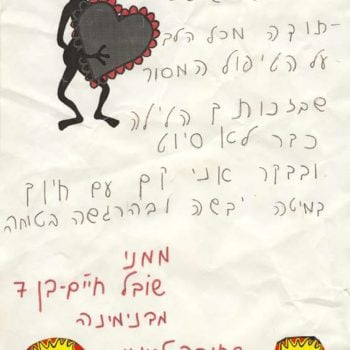 -תודה מכל הלב
על הטיפול המסור
שבזכותם הלילה
כבר לא סיוט
ובבקר אני קם עם חיוך
במיטה יבשה ובהרגשה בטוחה
ממני
שובל חיים-בן 7
מבנימינה